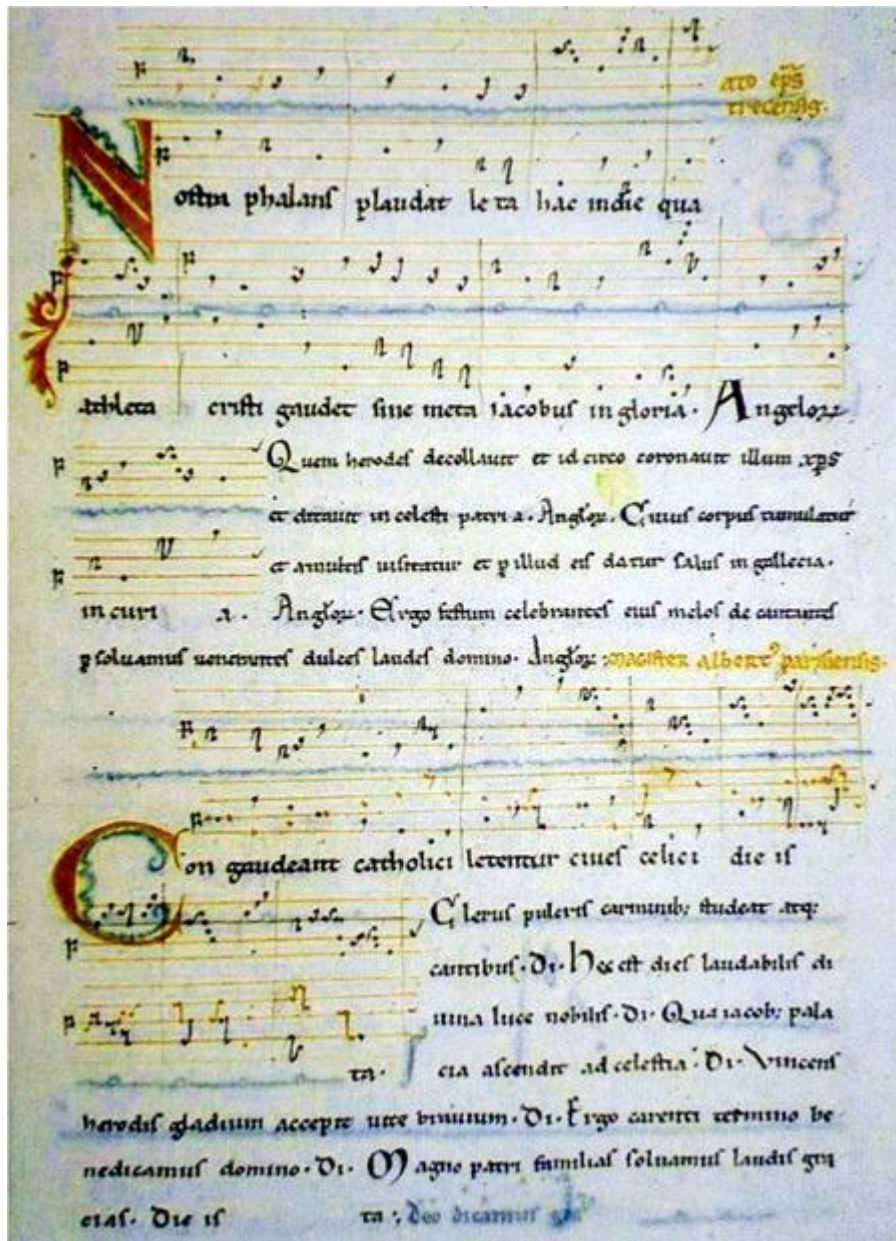 ato ep̃s
trecensis.
Nostra phalans plaudat leta hac indie qua
athleta cristi gaudet sine meta iacobus in gloria. Angeloꝝ
Quem herodes decollauit et id circo coronauit illum xp̃s
et ditauit in celesti patria. Angloꝝ. Cuius corpus tumulatur
et a multis uisitatur et ꝑ illud eis datur salus in gallecia.
in curi a. Angloꝝ. Ergo festum celebrantes eius melos decantantes
ꝑsoluamus uenerantes dulces laudes domino. Angloꝝ. magister albertꝰ parisiensis.
Congaudeant catholici letentur ciues celici die is
Clerus pulcris carminibꝫ studeat atqꝫ
cantibus. Di. Hec est dies laudabilis di
uina luce nobilis. Di. Qua iacobꝫ pala
ta. cia ascendit ad celestia. Di. Vincens
herodis gladium accepit uite brauium. Di. Ergo carenti termino be
nedicamus domino. Di. Magno patri familias soluamus laudis gra
cias. Die is ta. deo dicamus